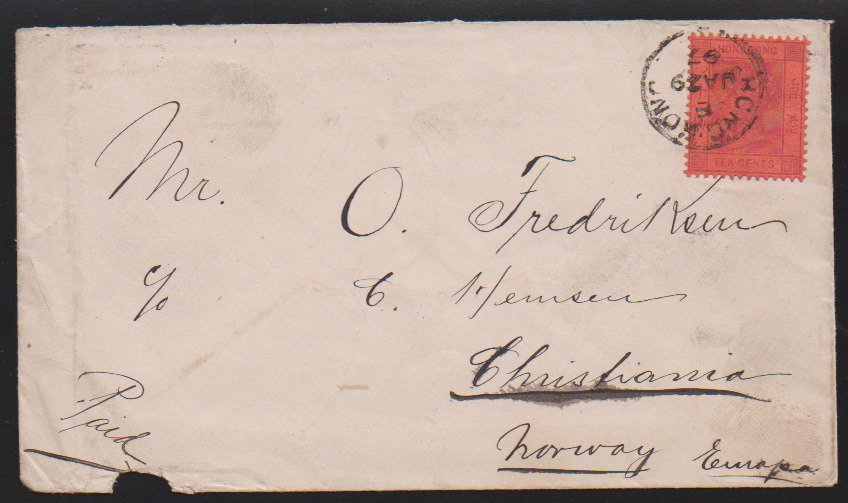 HONG KONG
TEN CENTS
HONG KONG
JA 29
97
Mr. O. Fredriksen
c/o C. Hemsen
Christiania
Norway Europa.
Paid